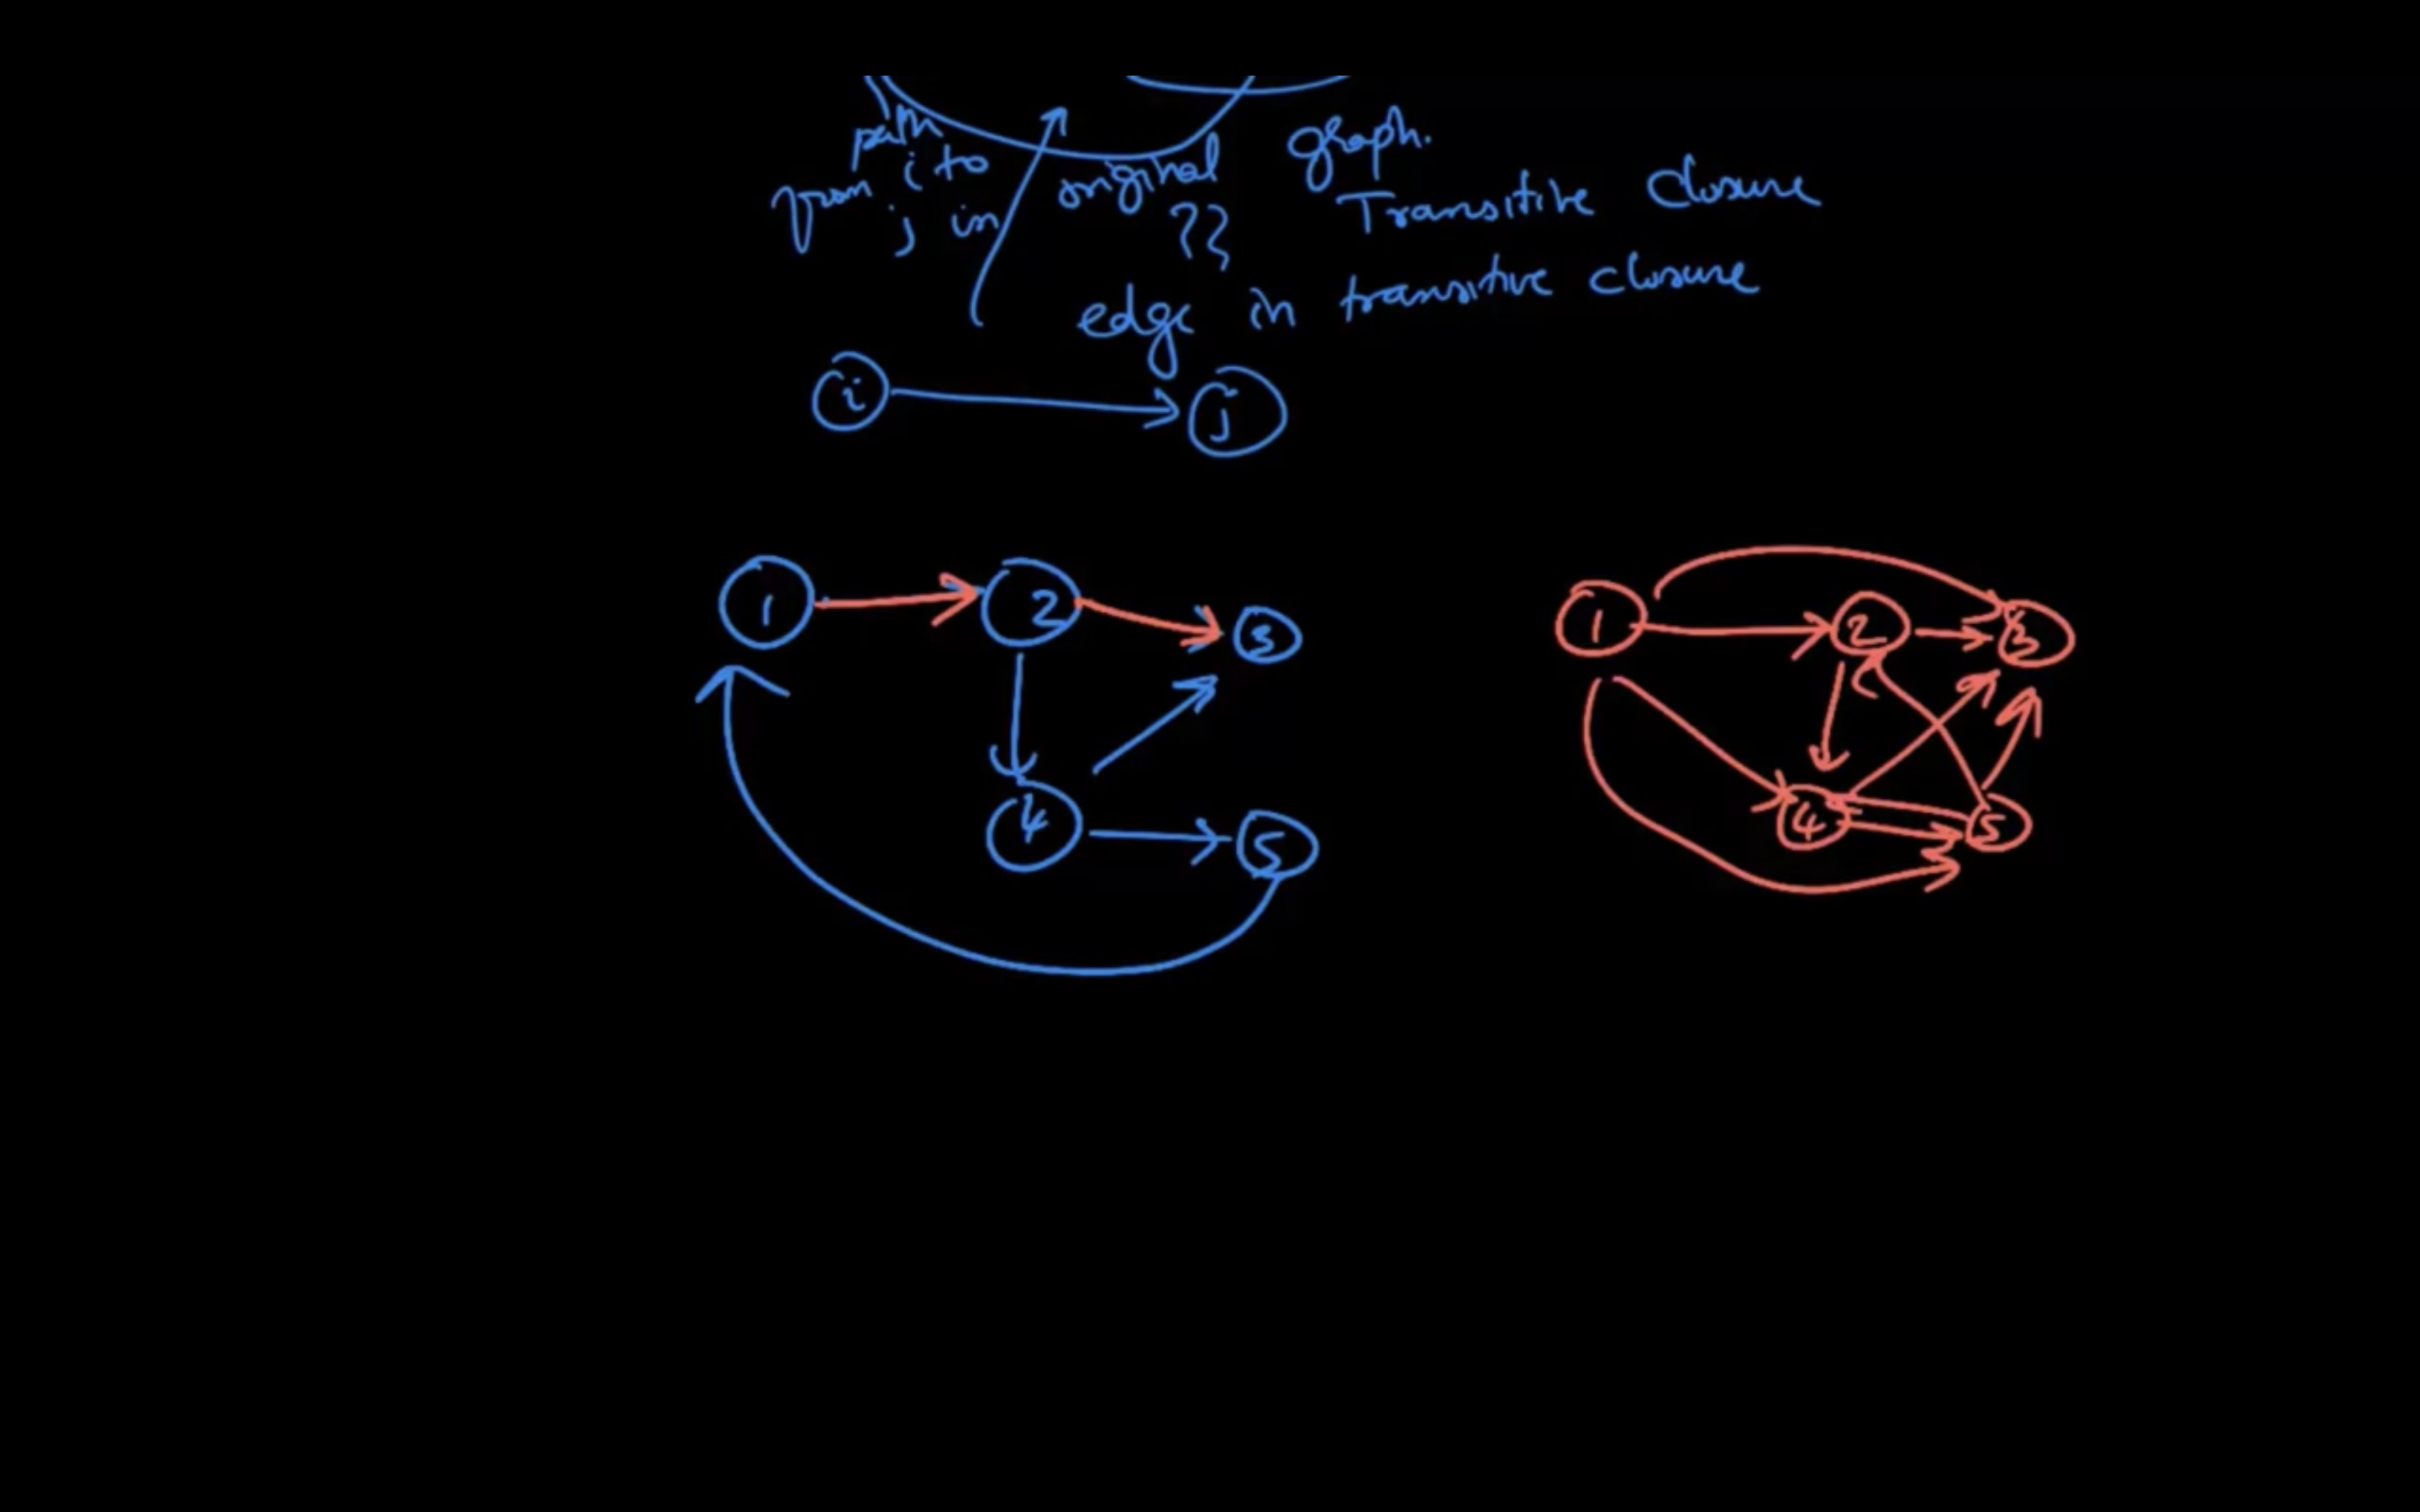 path
from i to
j in
original
??
graph.
Transitive Closure
edge in transitive closure
i j
1 2 3
4 5
1 2 3
4 5